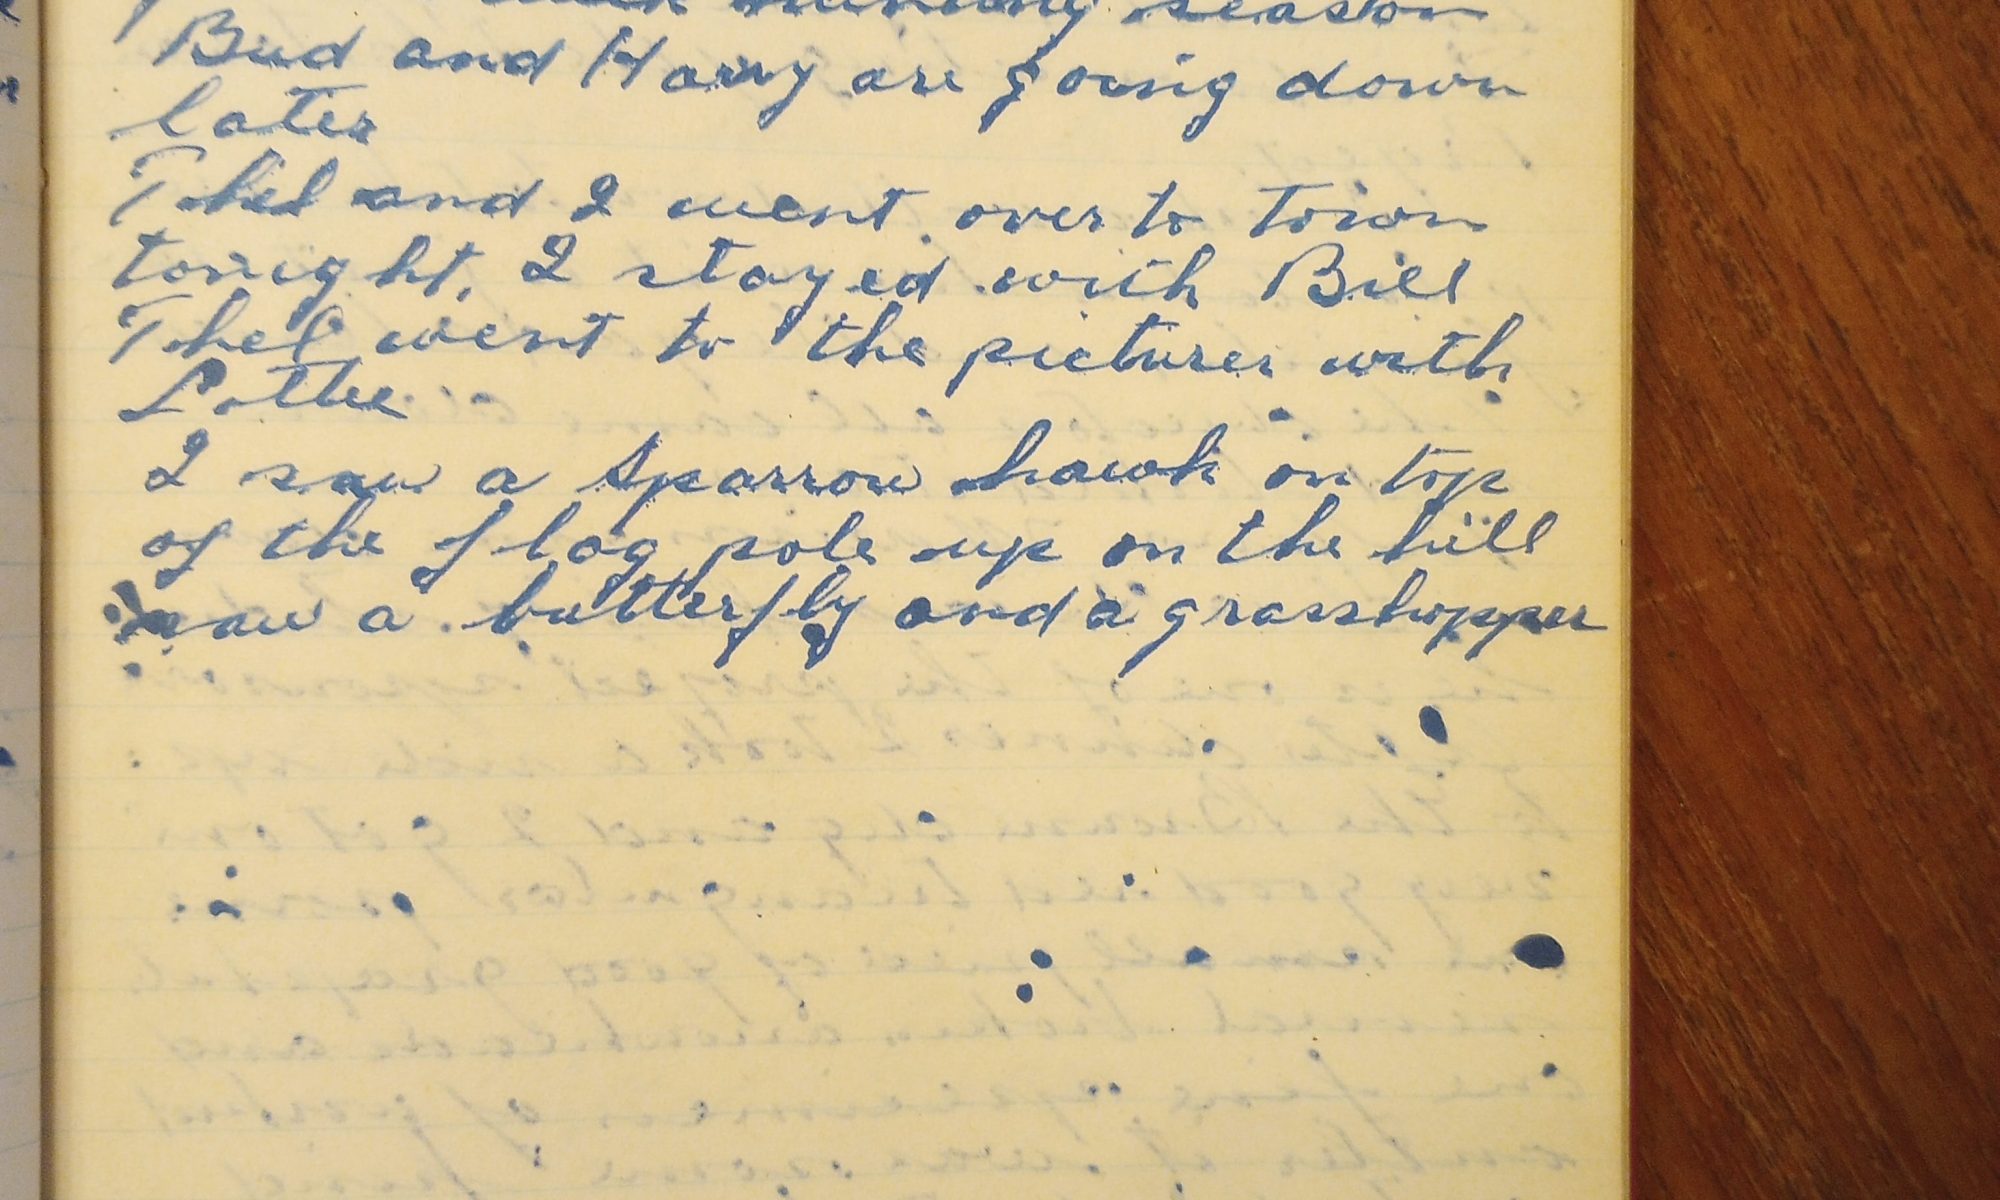 hunting season
Bud and Harry are going down
later
Thel and I went over to town
tonight. I stayed with Bill
Thel went to the pictures with
Lottie
I saw a sparrow hawk on top
of the flag pole up on the hill
saw a butterfly and a grasshopper